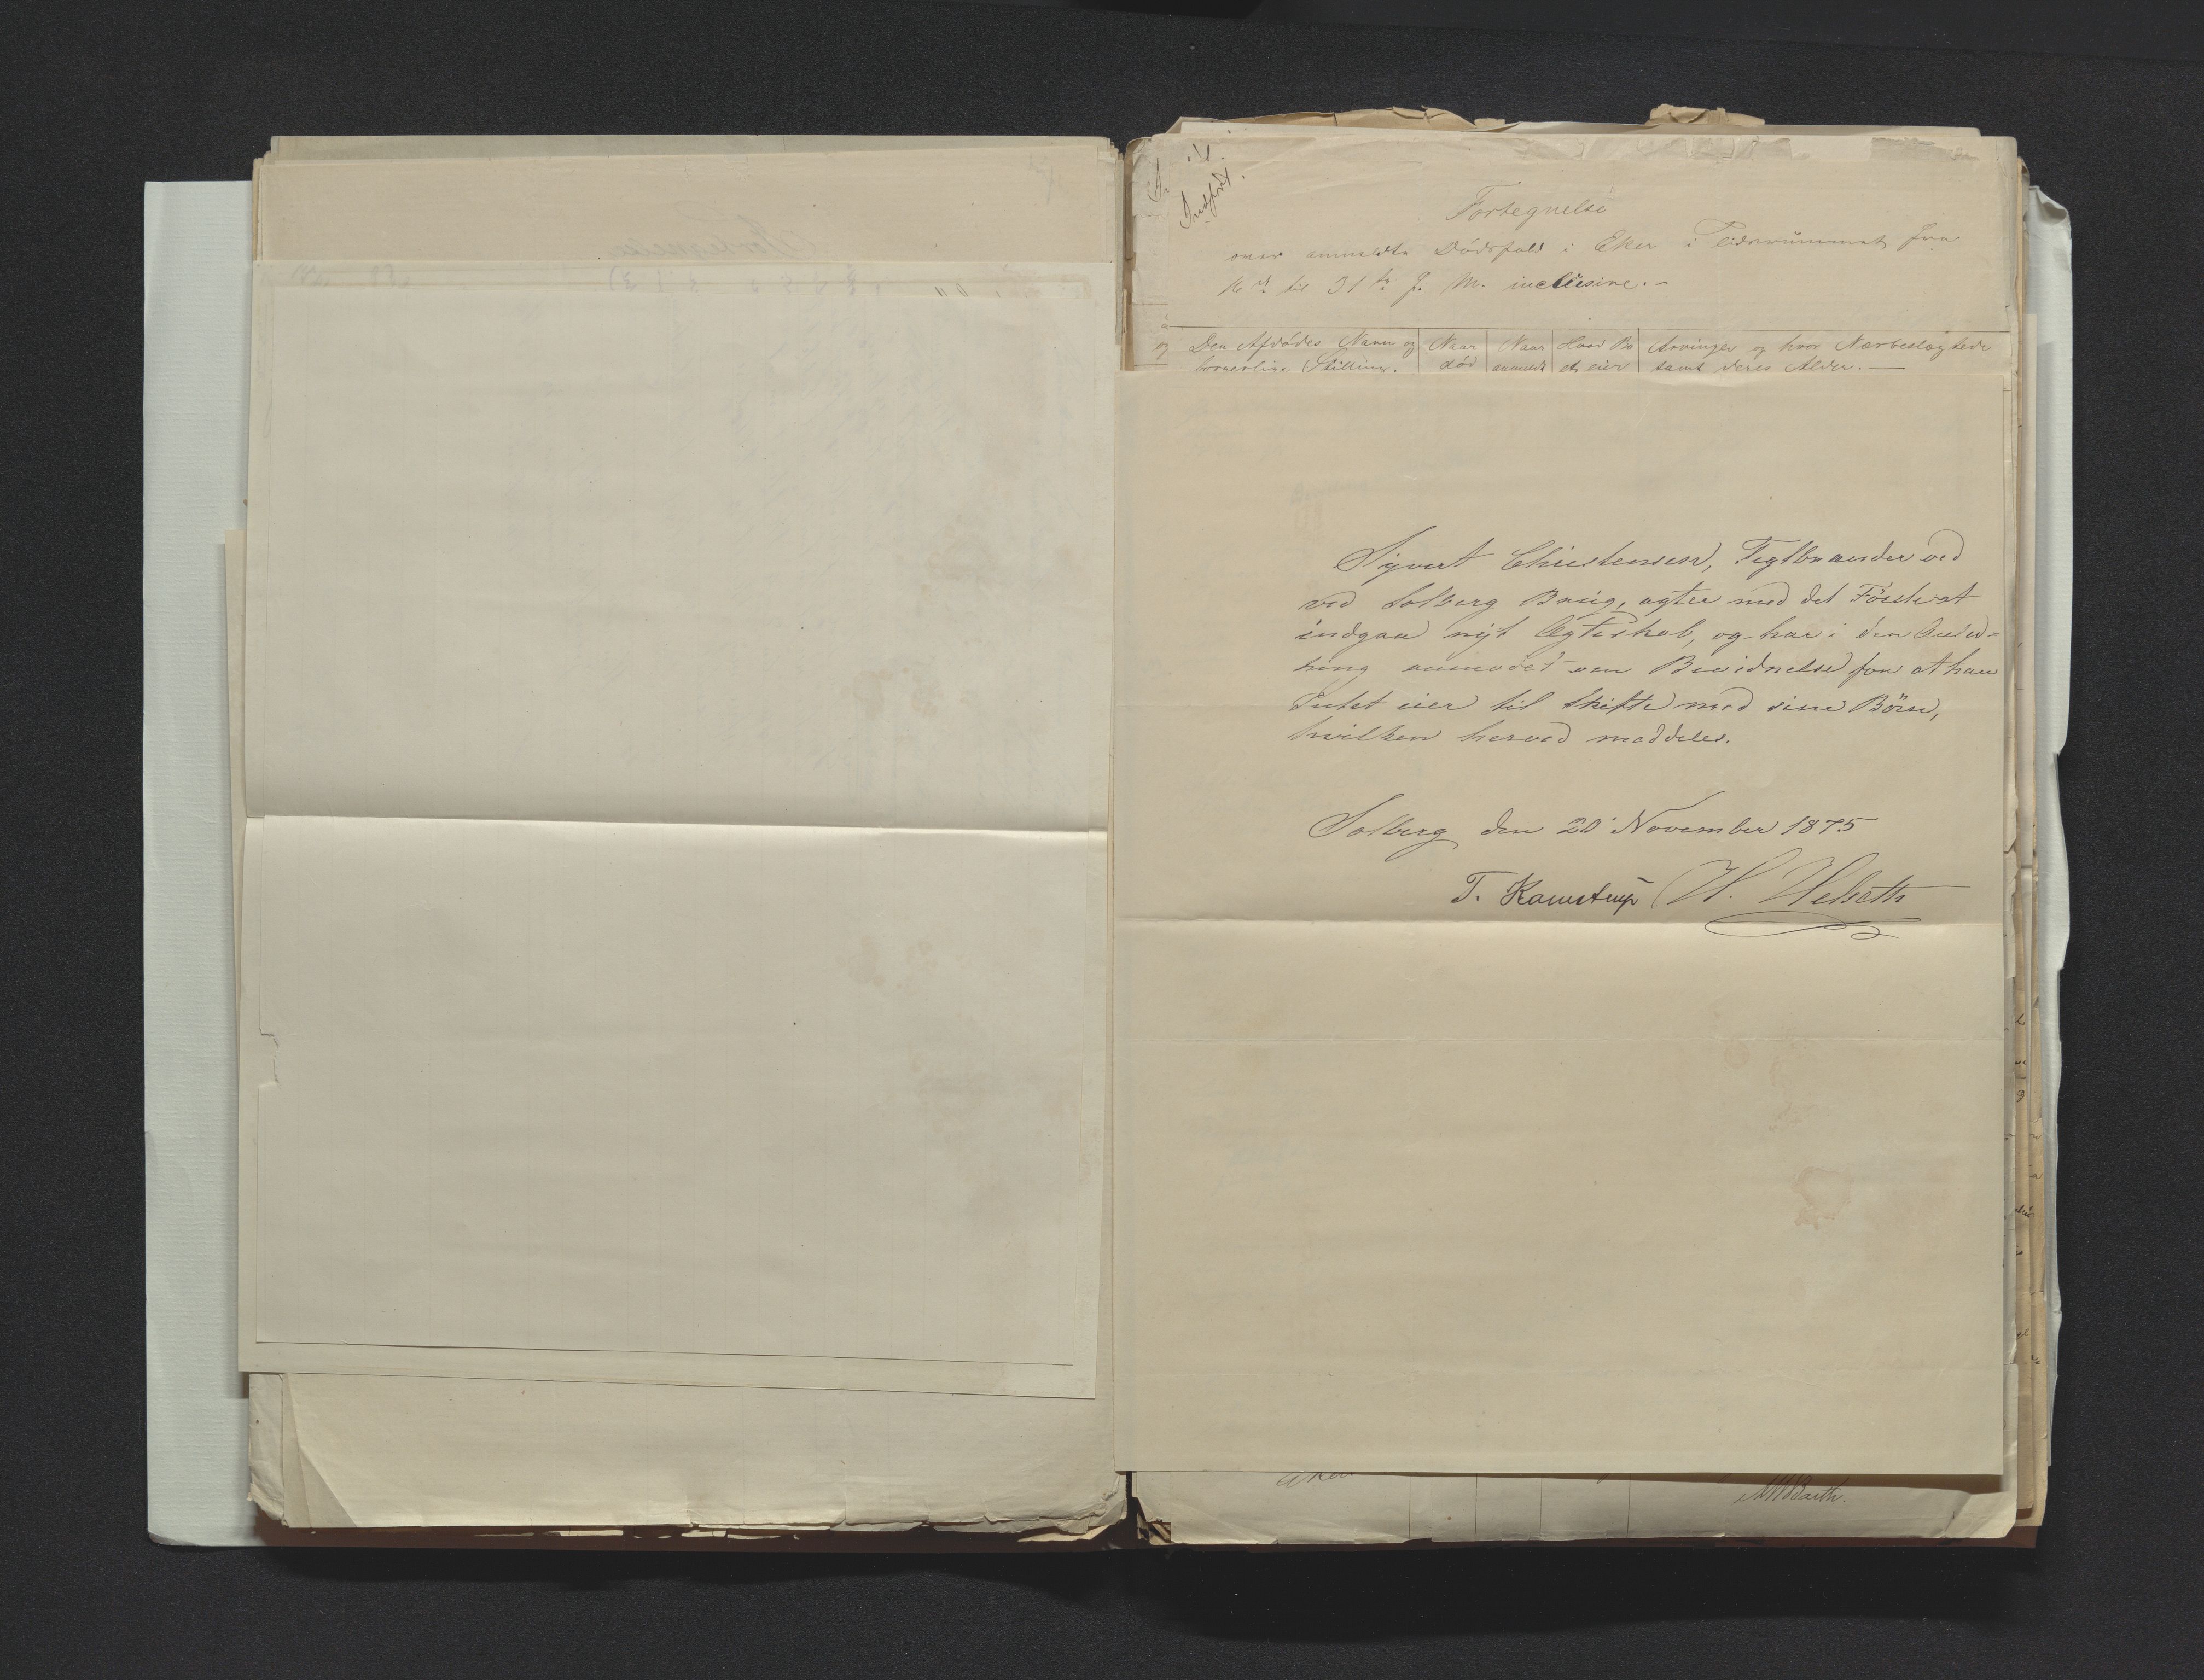 Indført.
Fortegnelse
over anmeldte Dødsfald i Eker i Tidsrummet fra
16de til 31te f. M. inclusive.-
Den Afdødes Navn og borgerlige Stilling.
Naar død
Naar anmeldt
Hvad Bo et eier
Arvinger og hvor Nærbeslægtede samt deres Alder.-
Syvert Christensen, Teglbrænder ved
ved Solberg Brug, agter med det Første at
indgaa nyt Ægteskab, og har i den Anled=
ning anmodet om Bevidnelse for at han
Intet eier til Skifte med sine Börn,
hvilken herved meddeles.
Solberg den 20 November 1875
T. Kamstrup W. Helseth
MBarth.